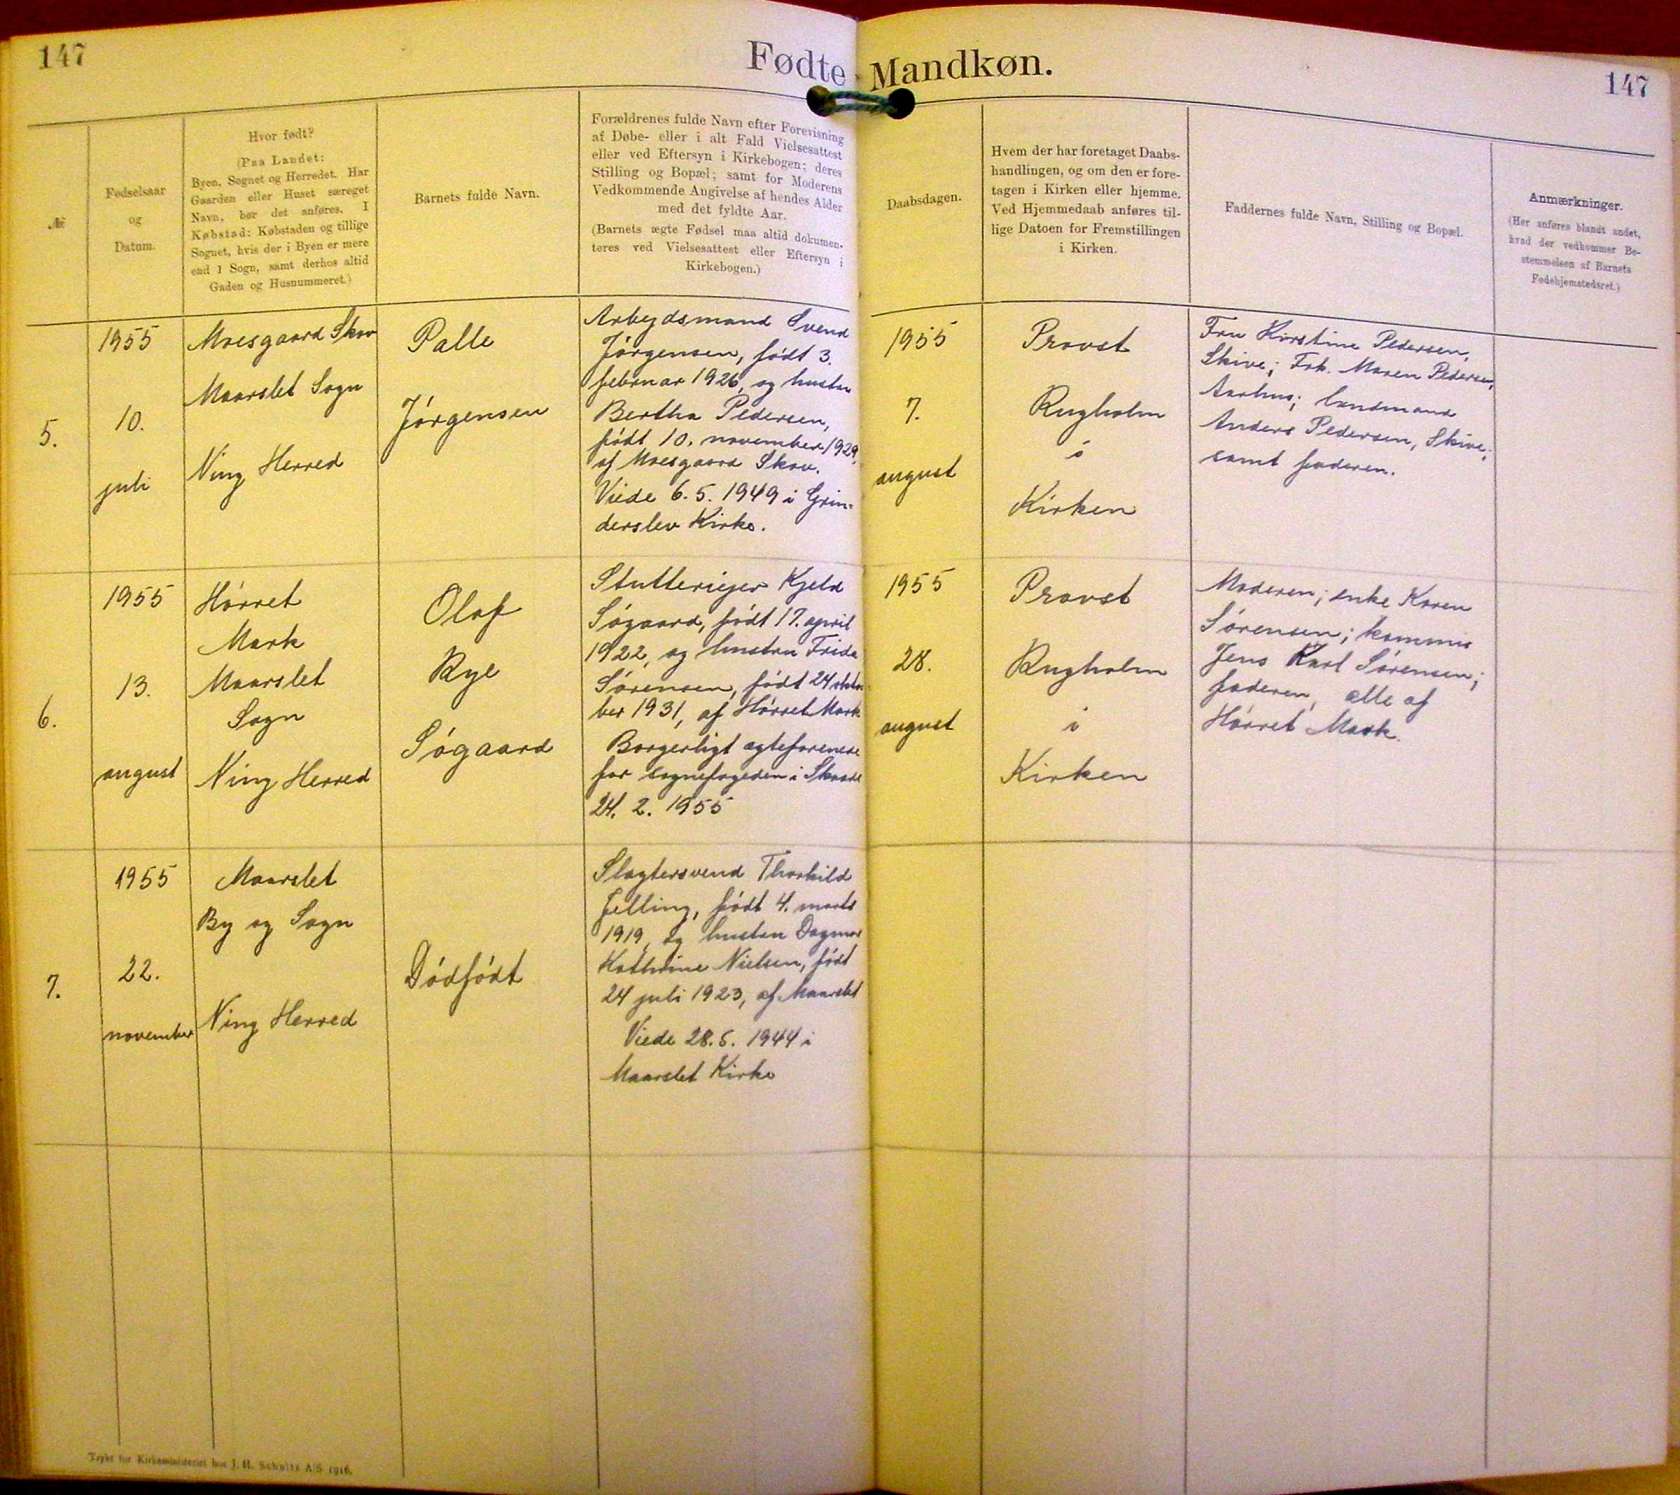 147
Fødte Mandkøn.
147
№
Fødselsaar
og
Datum.
Hvor født?
(Paa Landet:
Byen, Sognet og Herredet. Har
Gaarden eller Huset særeget
Navn, bør det anføres. I
Købstad: Købstaden og tillige
Sognet, hvis der i Byen er mere
end 1 Sogn, samt derhos altid
Gaden og Husnummeret.)
Barnets fulde Navn.
Forældrenes fulde Navn efter Forevisning
af Døbe- eller i alt Fald Vielsesattest
eller ved Eftersyn i Kirkebogen; deres
Stilling og Bopæl; samt for Moderens
Vedkommende Angivelse af hendes Alder
med det fyldte Aar.
(Barnets ægte Fødsel maa altid dokumen-
teres ved Vielsesattest eller Eftersyn i
Kirkebogen.)
Daabsdagen.
Hvem der har foretaget Daabs-
handlingen, og om den er fore-
tagen i Kirken eller hjemme.
Ved Hjemmedaab anføres til-
lige Datoen for Fremstillingen
i Kirken.
Faddernes fulde Navn, Stilling og Bopæl.
Anmærkninger.
(Her anføres blandt andet,
hvad der vedkommer Be-
stemmelsen af Barnets
Fødehjemstedsret.)
5.
1955
10.
juli
Moesgaard Skov
Maarslet Sogn
Ning Herred
Palle
Jørgensen
Arbejdsmand Svend
Jørgensen, født 3.
februar 1926, og hustru
Bertha Pedersen,
født 10. november 1929,
af Moesgaard Skov.
Viede 6.5.1949 i Grin-
derslev Kirke.
1955
7.
august
Provst
Rugholm
i
Kirken
Fru Kirstine Pedersen,
Skive; Frk. Maren Pedersen,
Aarhus; landmand
Anders Pedersen, Skive;
samt faderen.
6.
1955
13.
august
Hørret
Mark
Maarslet
Sogn
Ning Herred
Olaf
Rye
Søgaard
Stutteriejer Kjeld
Søgaard, født 17. april
1922, og hustru Frida
Sørensen, født 24 okto-
ber 1931, af Hørret Mark
Borgerligt ægteforenede
for sognefogeden i Skaade
24. 2. 1955
1955
28.
august
Provst
Rugholm
i
Kirken
Moderen; enke Karen
Sørensen; kommis
Jens Karl Sørensen;
faderen, alle af
Hørret Mark.
7.
1955
22.
november
Maarslet
By og Sogn
Ning Herred
Dødfødt
Slagtersvend Thorkild
Jelling, født 4. marts
1919, og hustru Dagmar
Kathrine Nielsen, født
24 juli 1923, af Maarslet
Viede 28.5. 1944 i
Maarslet Kirke
Trykt for Kirkeministeriet hos J. H. Schultz A/S 1916.